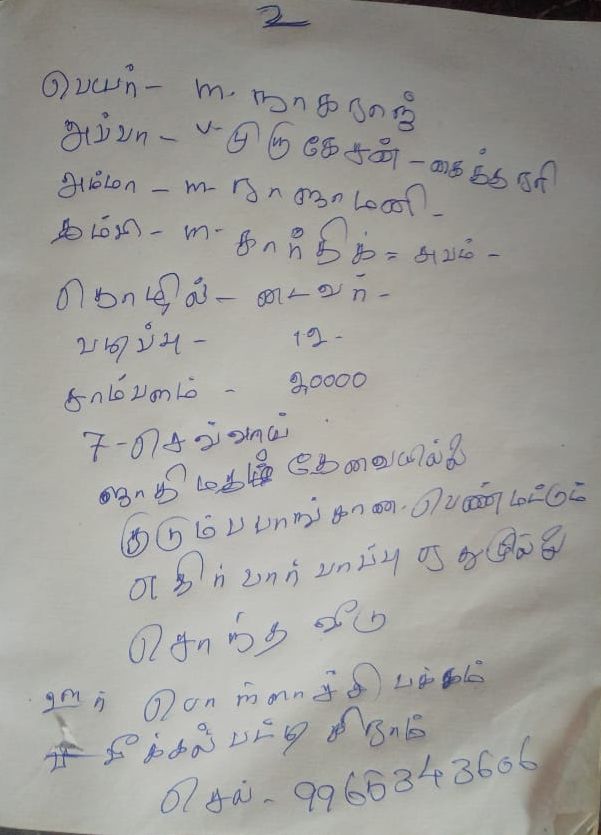 2
பெயர் - m. நாகராஜ்
அப்பா - v. முருகேசன் - கைத்தரி
அம்மா - m. நாகமணி -
தம்பி - m. கார்த்திக் = சுபம் -
தொழில் - டைவர் -
படிப்பு - 12 -
சாம்பளம் - 20000
7 - செவ்வாய்
ஜாதி மதம் தேவையில்லை
குடும்ப பாங்கான பெண் மட்டும்
எதிர்பார்பாப்பு ஏதுமில்லை
சொந்த வீடு
ஊர் பொள்ளாச்சி பக்கம்
கிராம்
செல் - 9965343606